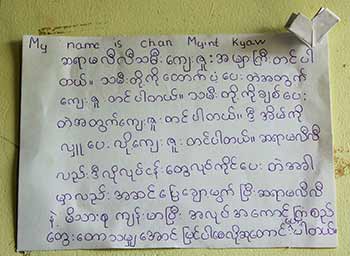 My name is Chan Myint Kyaw
ဆရာမလီလီသမီး ကျေးဇူး အများကြီး တင်ပါ
တယ်။ သမီးတို့ကိုထောက်ပံ့ပေးတဲ့အတွက်
ကျေးဇူးတင်ပါတယ်။ သမီးတို့ကိုချစ်ပေး
တဲ့အတွက်ကျေးဇူးတင်ပါတယ်။ ဒီအိမ်ကို
လှူပေးလို့ကျေးဇူးတင်ပါတယ်။ ဆရာမလီလီ
လည်းဒီလိုလုပ်ငန်းတွေလုပ်ကိုင်ပေးတဲ့အခါ
မှာလည်း အဆင်ပြေချောမွေ့ပြီးဆရာမလီလီ
နဲ့ မိသားစု ကျန်းမာပြီး အလုပ်အကောင်
တွေးတောသမျှအောင်မြင်ပါစေလို့ဆုတောင်းပေးပါတယ်။